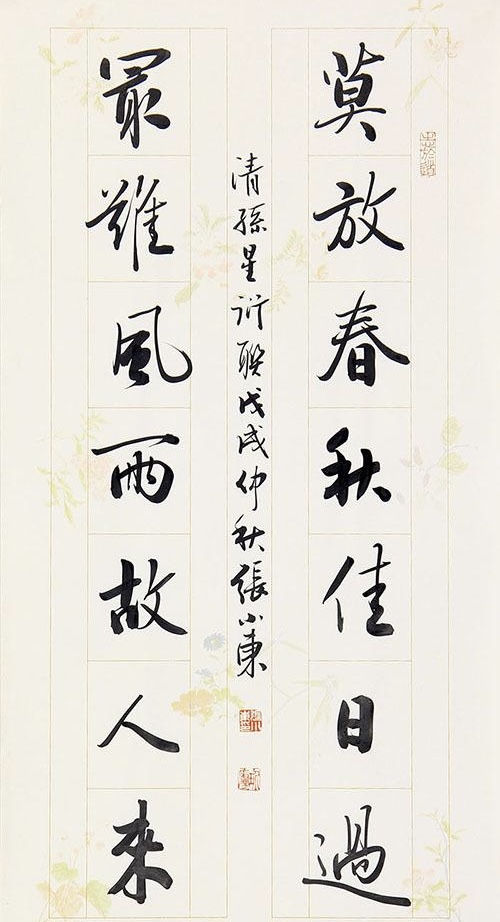 莫放春秋佳日過
最難風雨故人來
清孫星衍聯戊戌仲秋張小東